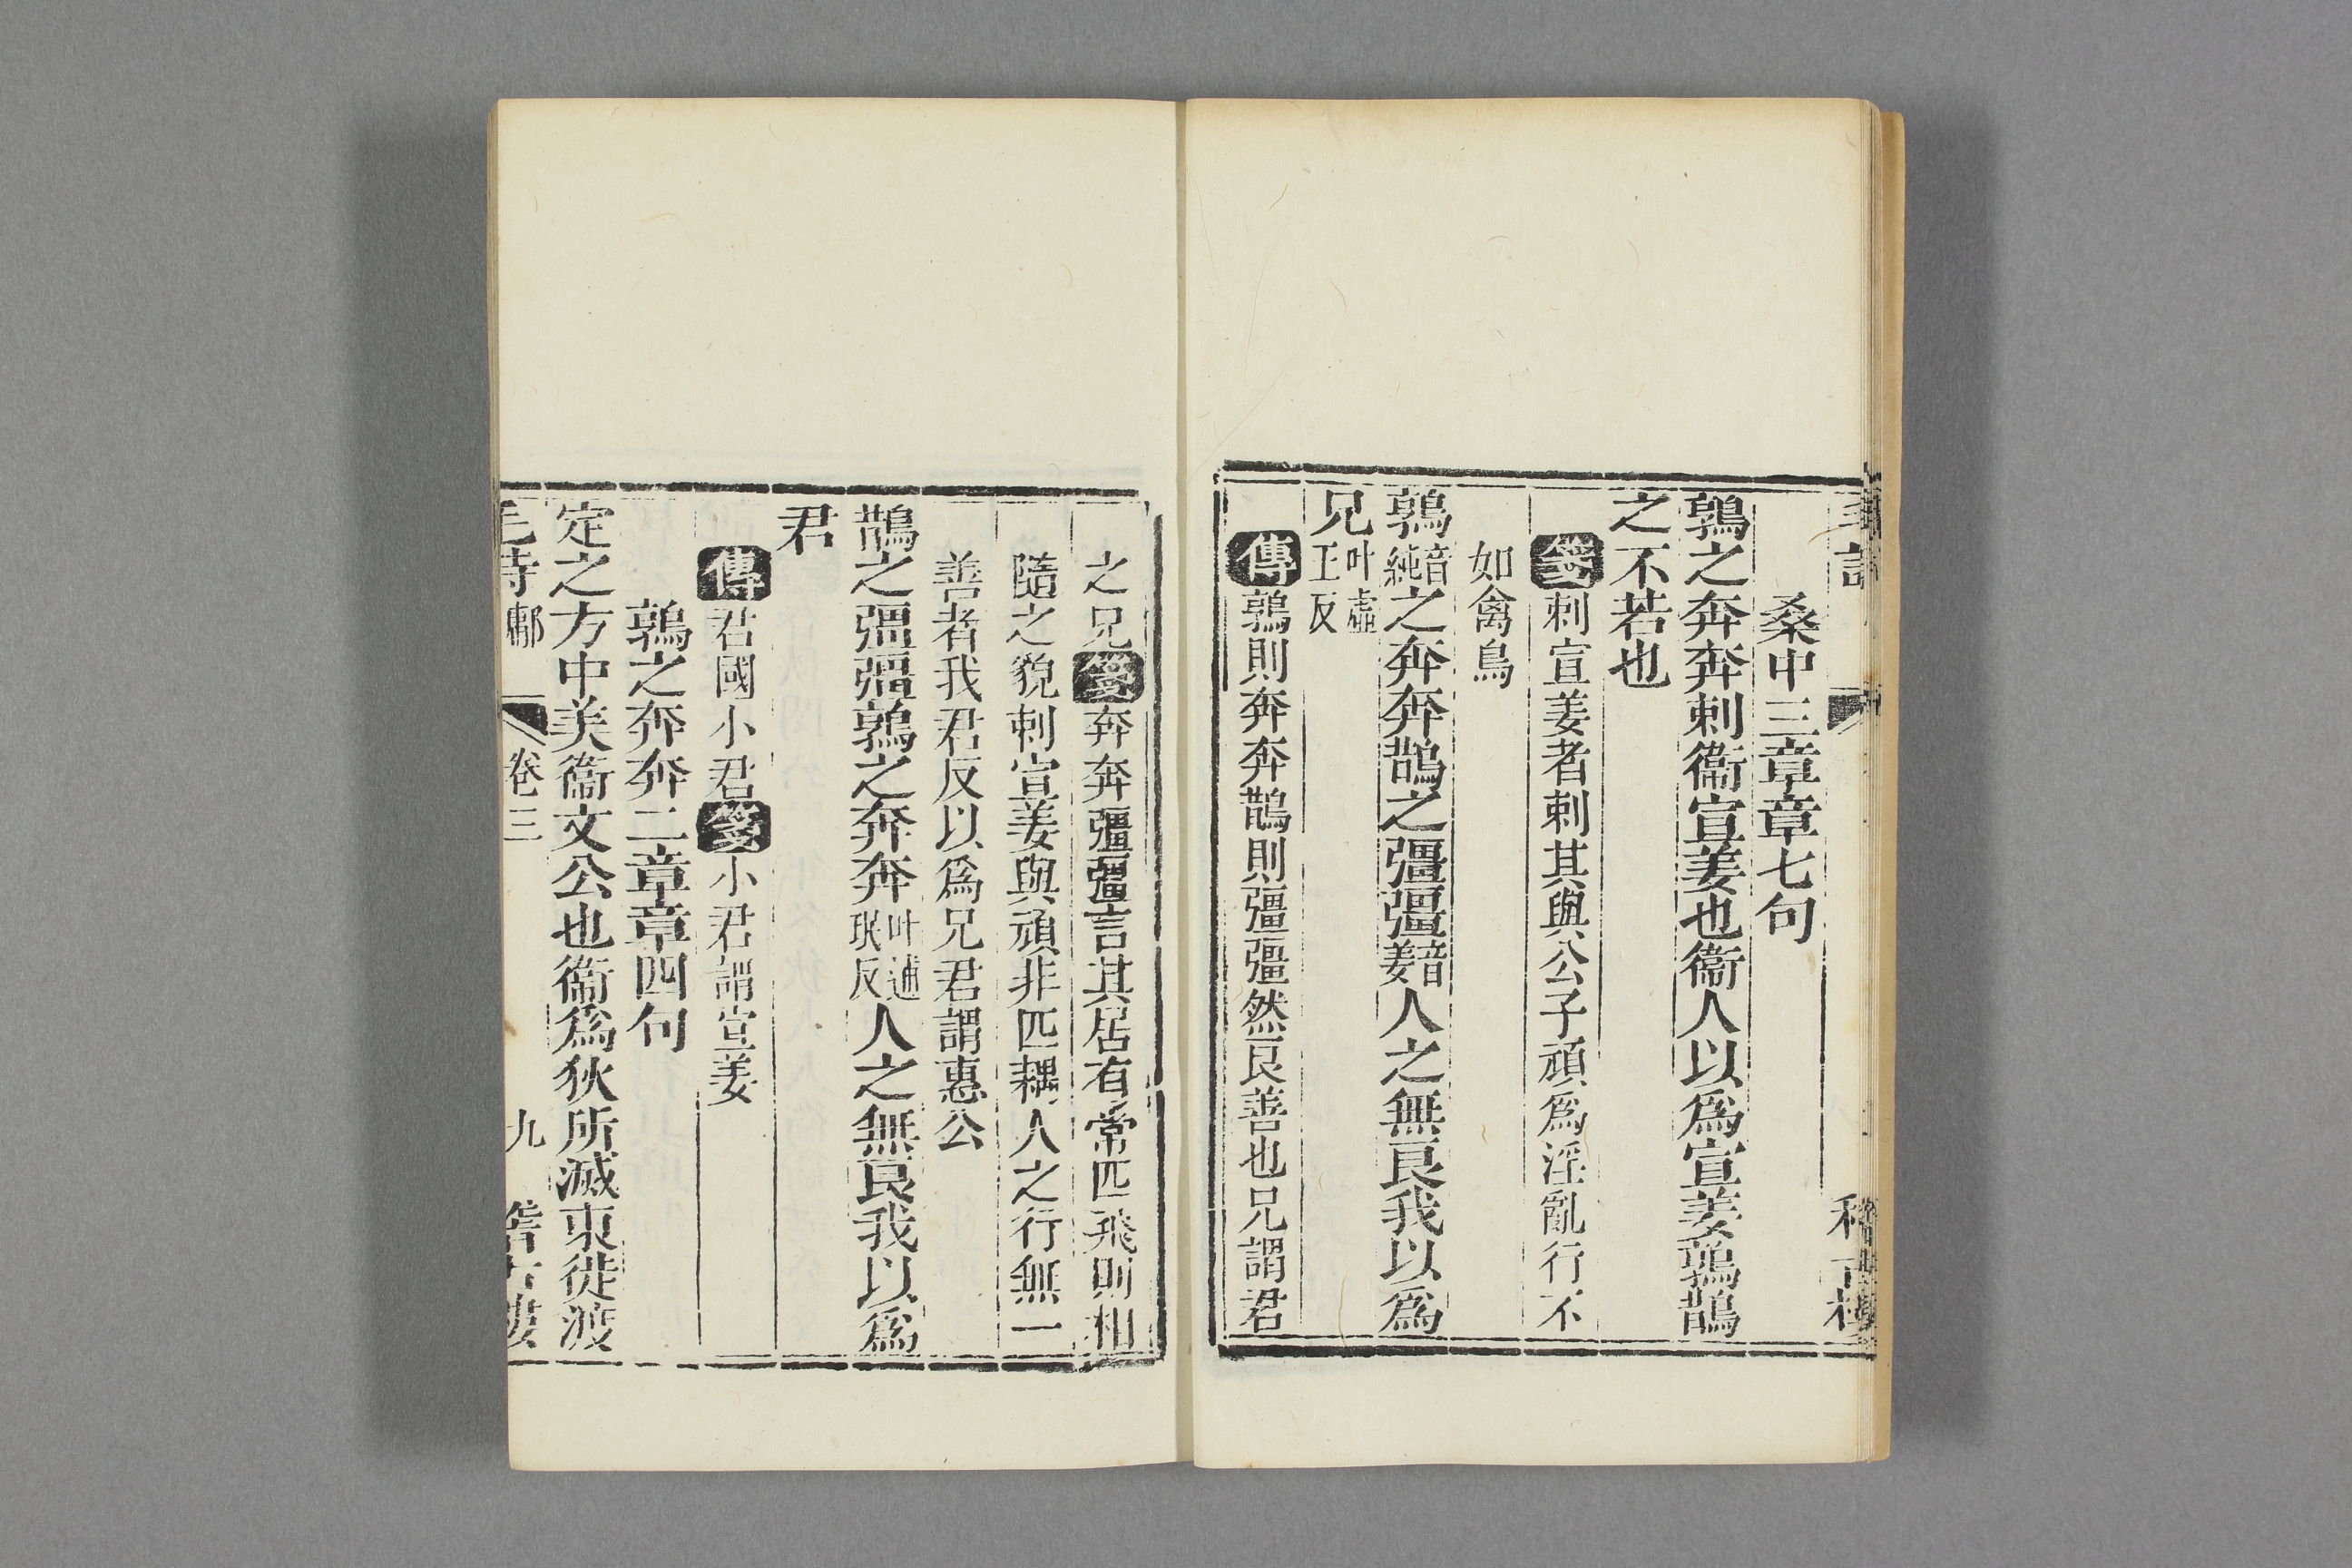 桑中三章章七句
鶉之奔奔刺衞宣姜也衞人以爲宣姜鶉鵲
之不若也
箋刺宣姜者刺其與公子頑爲淫亂行不
如禽鳥
鶉音純之奔奔鵲之彊彊音姜人之無良我以爲
兄叶虛王反
傳鶉則奔奔鵲則彊彊然良善也兄謂君
之兄箋奔奔彊彊言其居有常匹飛則相
隨之貌刺宣姜與頑非匹耦人之行無一
善者我君反以爲兄君謂惠公
鵲之彊彊鶉之奔奔叶逋珉反人之無良我以爲
君
傳君國小君箋小君謂宣姜
鶉之奔奔二章章四句
定之方中美衞文公也衞爲狄所滅東徙渡
毛詩鄘 卷三 九